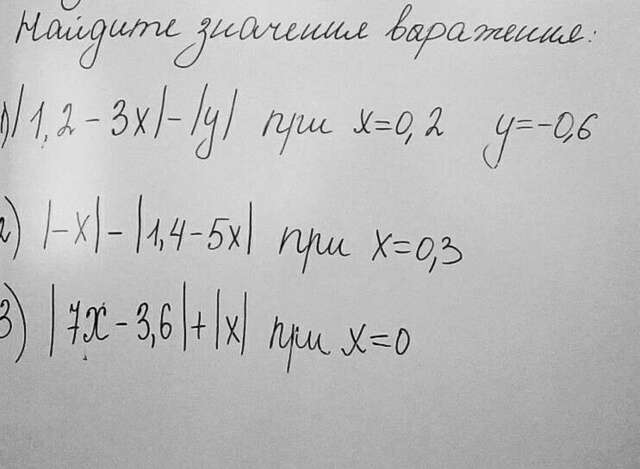 Найдите значения выражения:
1) |1,2 - 3x| - |y| при x=0,2 y=-0,6
2) |-x| - |1,4 - 5x| при x=0,3
3) |7x - 3,6| + |x| при x=0